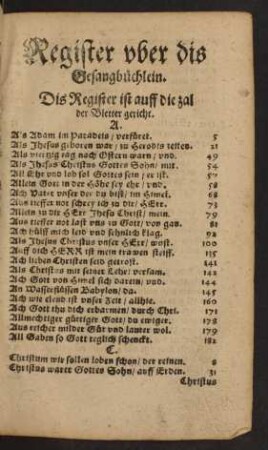 Register vber dis
Gesangbüchlein.
Dis Register ist auff die zal
der Bletter gericht.
A.
Als Adam im Paradeis / verfüret. 5
Als Jhesus geboren war / zu Herodis zeiten. 21
Als viertzig tag nach Ostern warn / vnd. 49
Als Jhesus Christus Gottes Sohn / mit. 54
All Ehr vnd lob sol Gottes sein / er ist. 57
Allein Gott in der Höhe sey ehr / vnd. 58
Ach Vater vnser der du bist / im Himel. 68
Aus tieffer not schrey ich zu dir / HErr. 73
Allein zu dir HErr Jhesu Christ / mein. 79
Aus tieffer not last vns zu Gott / von gan. 81
Ach hülff mich leid vnd sehnlich klag. 92
Als Jhesus Christus vnser HErr / wost. 100
Auff dich HERR ist mein trawen steiff. 115
Ach lieben Christen seid getrost. 141
Als Christus mit seiner Lehr / versam. 142
Ach Gott von Himel sich darein / vnd. 144
An Wasserflüssen Babylon / da. 145
Ach wie elend ist vnser Zeit / allhie. 160
Ach Gott thu dich erbarmen / durch Chri. 171
Allmechtiger gütiger Gott / du ewiger. 178
Aus reicher milder Güt vnd lauter wol. 179
All Gaben so Gott teglich schenckt. 182
C.
Christum wir sollen loben schon / der reinen. 8
Christus warer Gottes Sohn / auff Erden. 31
Christus